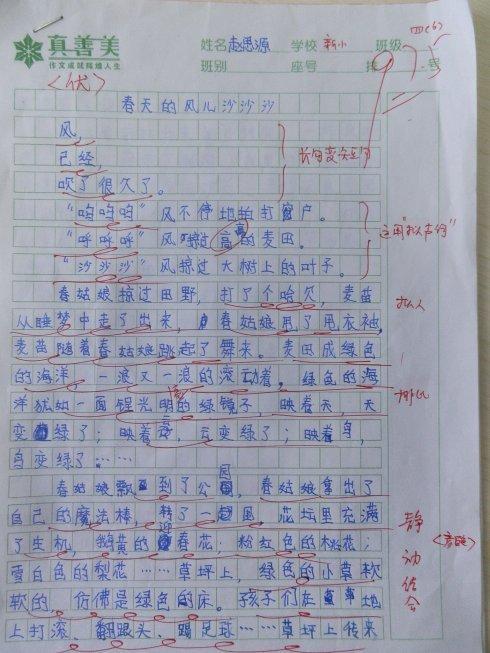 真善美
作文成就辉煌人生
姓名 赵思源 学校 新小 班级 四(6)
班别 座号
<优>
春天的风儿沙沙沙
风,
已经,
吹了很久了。
长句变短句
“呜呜呜”风不停地拍打窗户。
“呼呼呼”风掠过高高的麦田。
运用“拟声词”
“沙沙沙”风掠过大树上的叶子。
春姑娘掠过田野,打了个哈欠,麦苗
拟人
从睡梦中走了出来,春姑娘甩了甩衣袖,
麦苗随着春姑娘跳起了舞来。麦田成绿色
的海洋,一浪又一浪的滚动着。绿色的海
洋犹如一面锃光明的绿镜子,映着天,天
排比
变绿了;映着云,云变绿了;映着鸟,
鸟变绿了……
春姑娘飘到了公园,春姑娘拿出了
自己的魔法棒,转了一圈,花坛里充满
了生机,鹅黄的迎春花;粉红色的桃花;
雪白色的梨花……草坪上,绿色的小草软
软的,仿佛是绿色的床。孩子们在草地
上打滚、翻跟头、踢足球……草坪上传来
静动结合